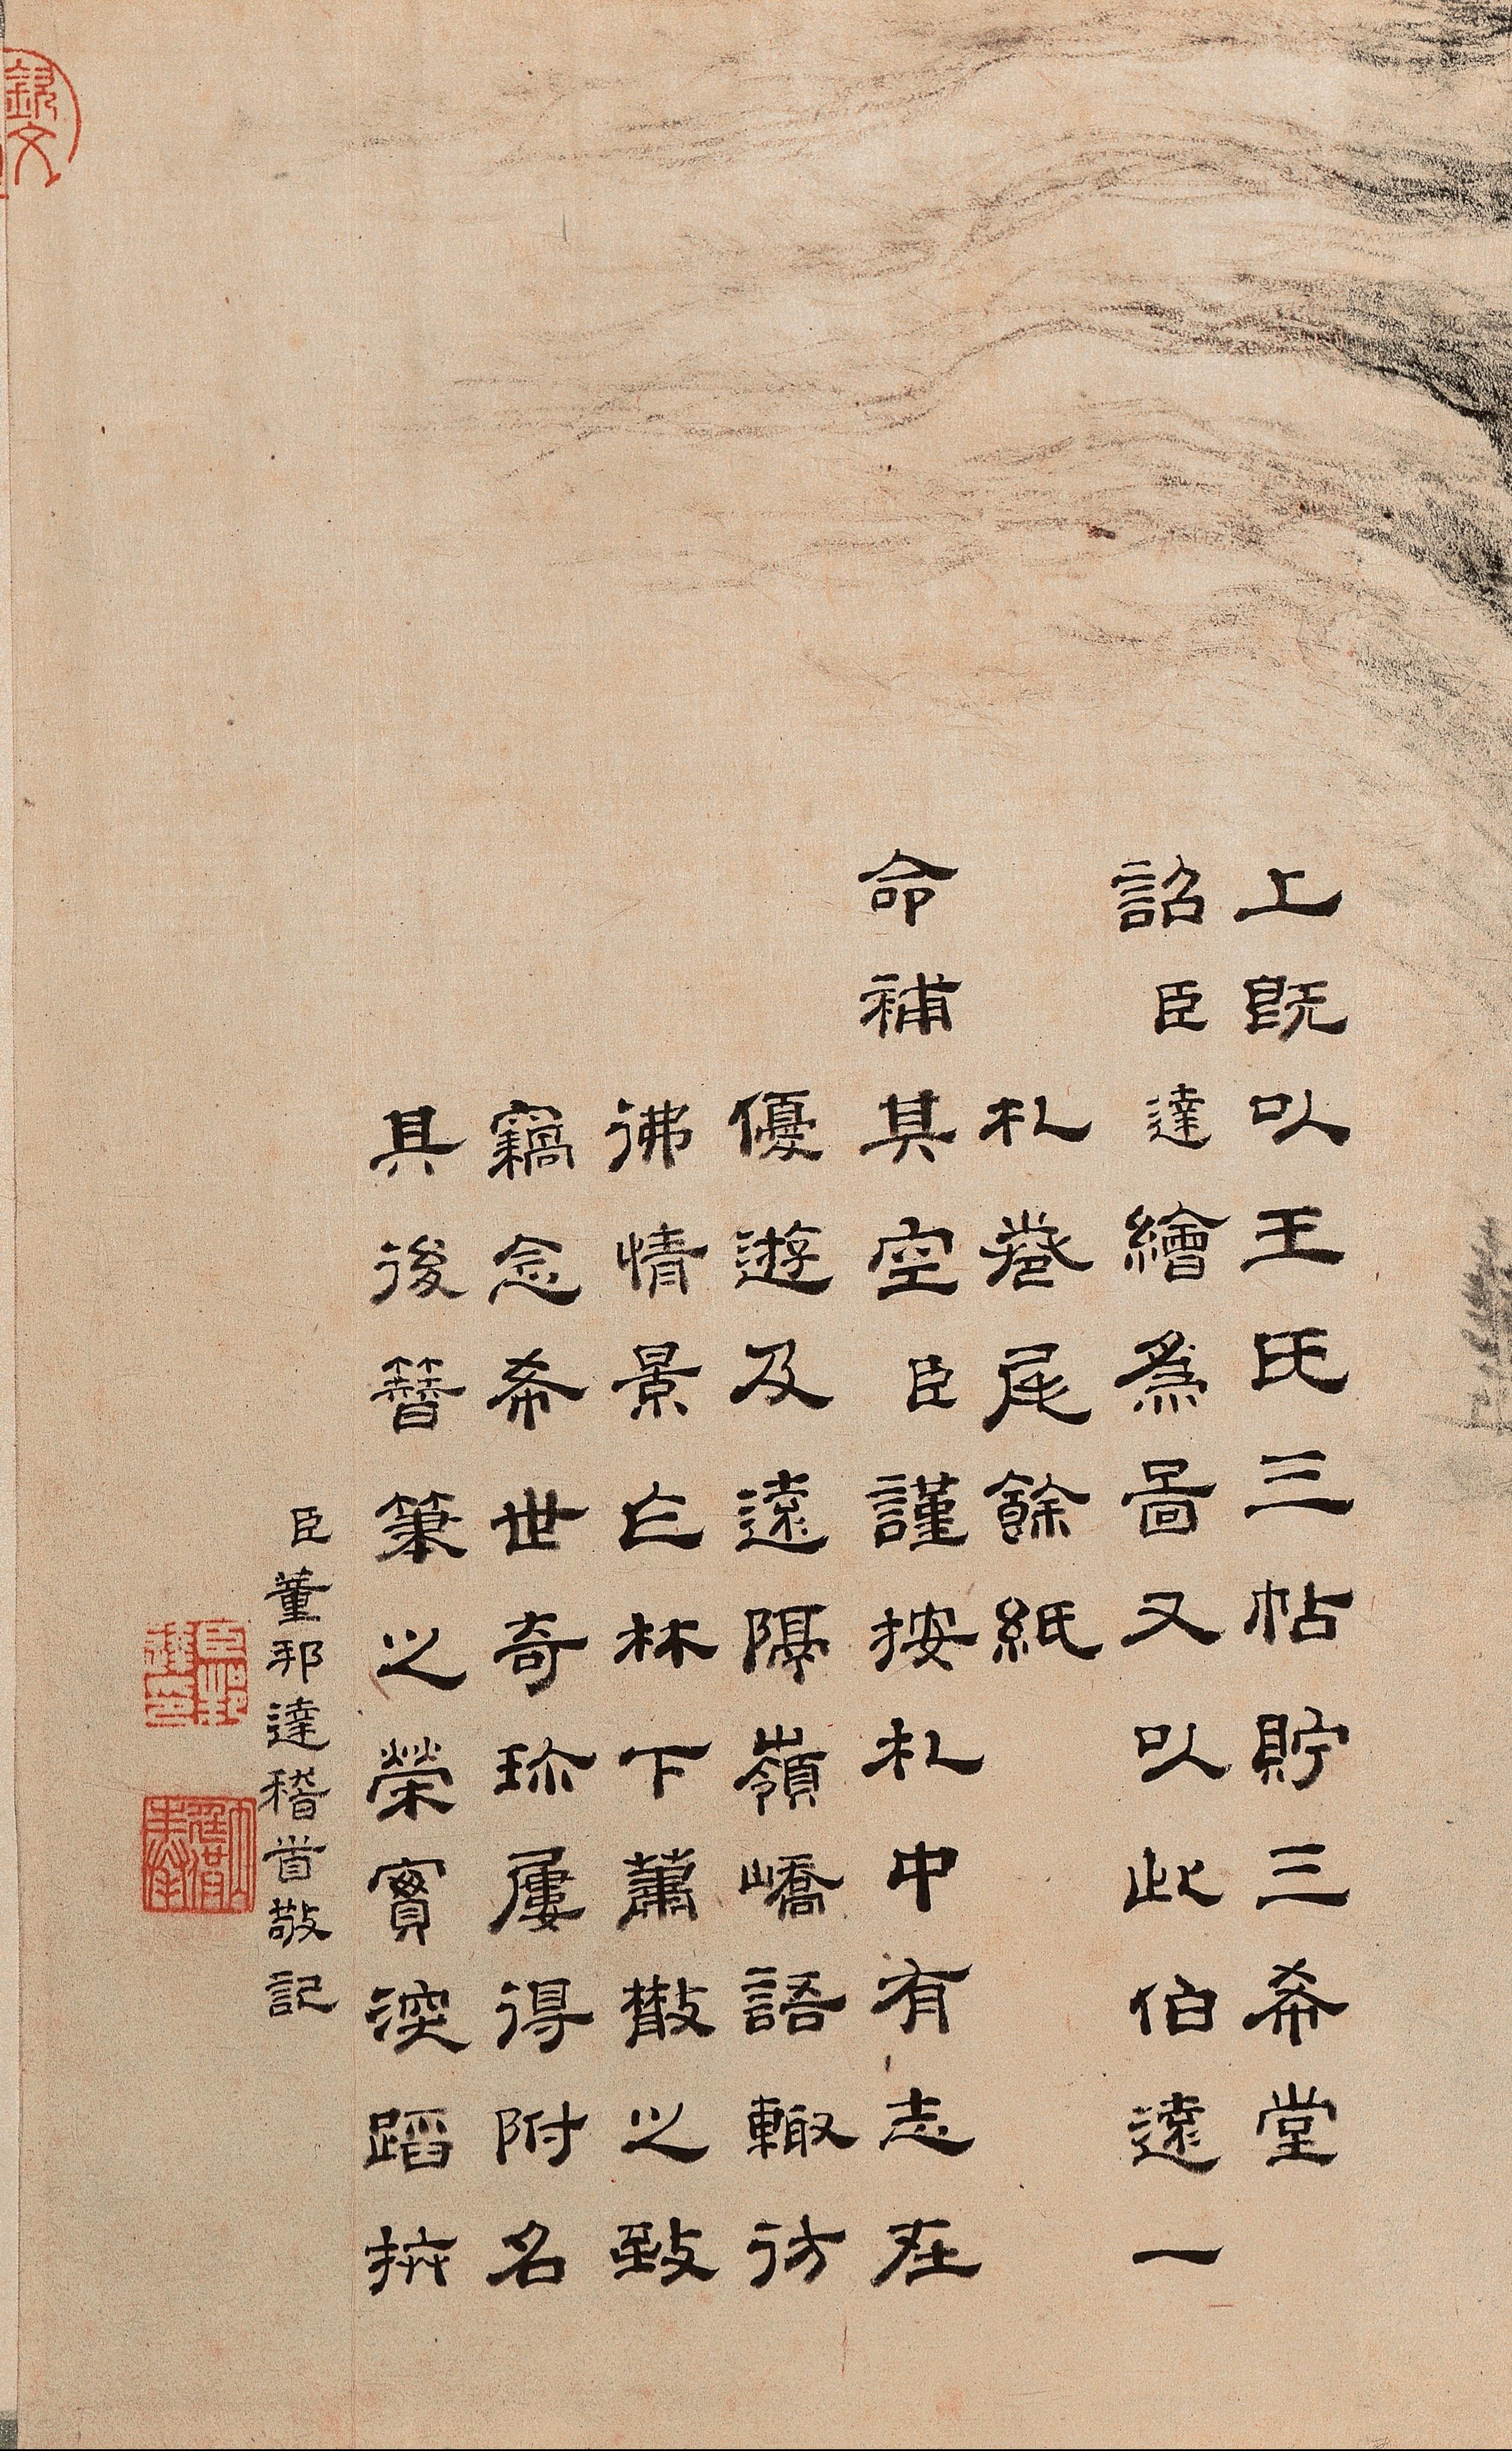 上既以王氏三帖貯三希堂
詔臣達繪為圖又以此伯遠一
札卷尾餘紙
命補其空臣謹按札中有志在
優遊及遠隔嶺嶠語輙彷
彿情景林下蕭散之致
竊念希世奇珍屢得附名
其後簪筆之榮實深蹈抃
臣董邦達稽首敬記